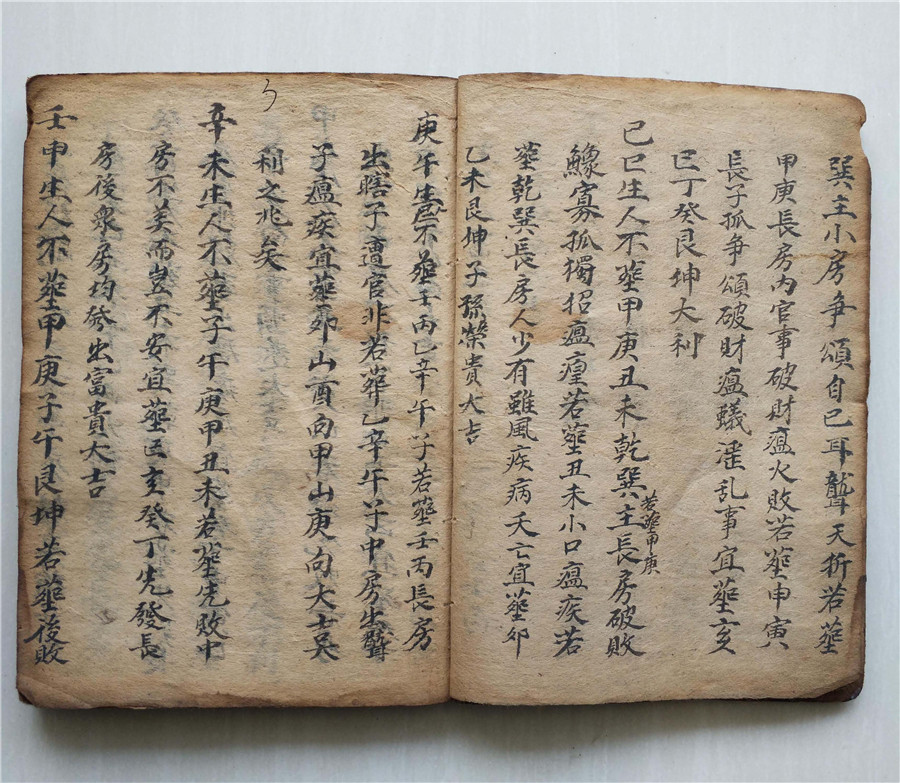 巽主小房争頌自已耳聾夭折若塟
甲庚長房内官事破財瘟火敗若塟申寅
長子孤争頌破財瘟蟻滛乱事宜塟亥
巳丁癸艮坤大利
己巳生人不塟甲庚丑未乾巽主長房破敗
若塟甲庚
鰥寡孤獨招瘟瘟若塟丑未小口瘟疾若
塟乾巽長房人少有雖風疾病夭亡宜塟卯
乙未艮坤子孫榮貴大吉
庚午生不塟壬丙乙辛午子若塟壬丙長房
出瞎子遭官非若葬乙辛午子中房出聾
子瘟疾宜塟卯山酉向甲山庚向大吉吴
利之兆矣
辛未生人不塟子午庚甲丑未若塟先敗中
房不美而豈不安宜塟巳亥癸丁先發長
房後衆房均發出富貴大吉
壬申生人不塟甲庚子午艮坤若塟後敗